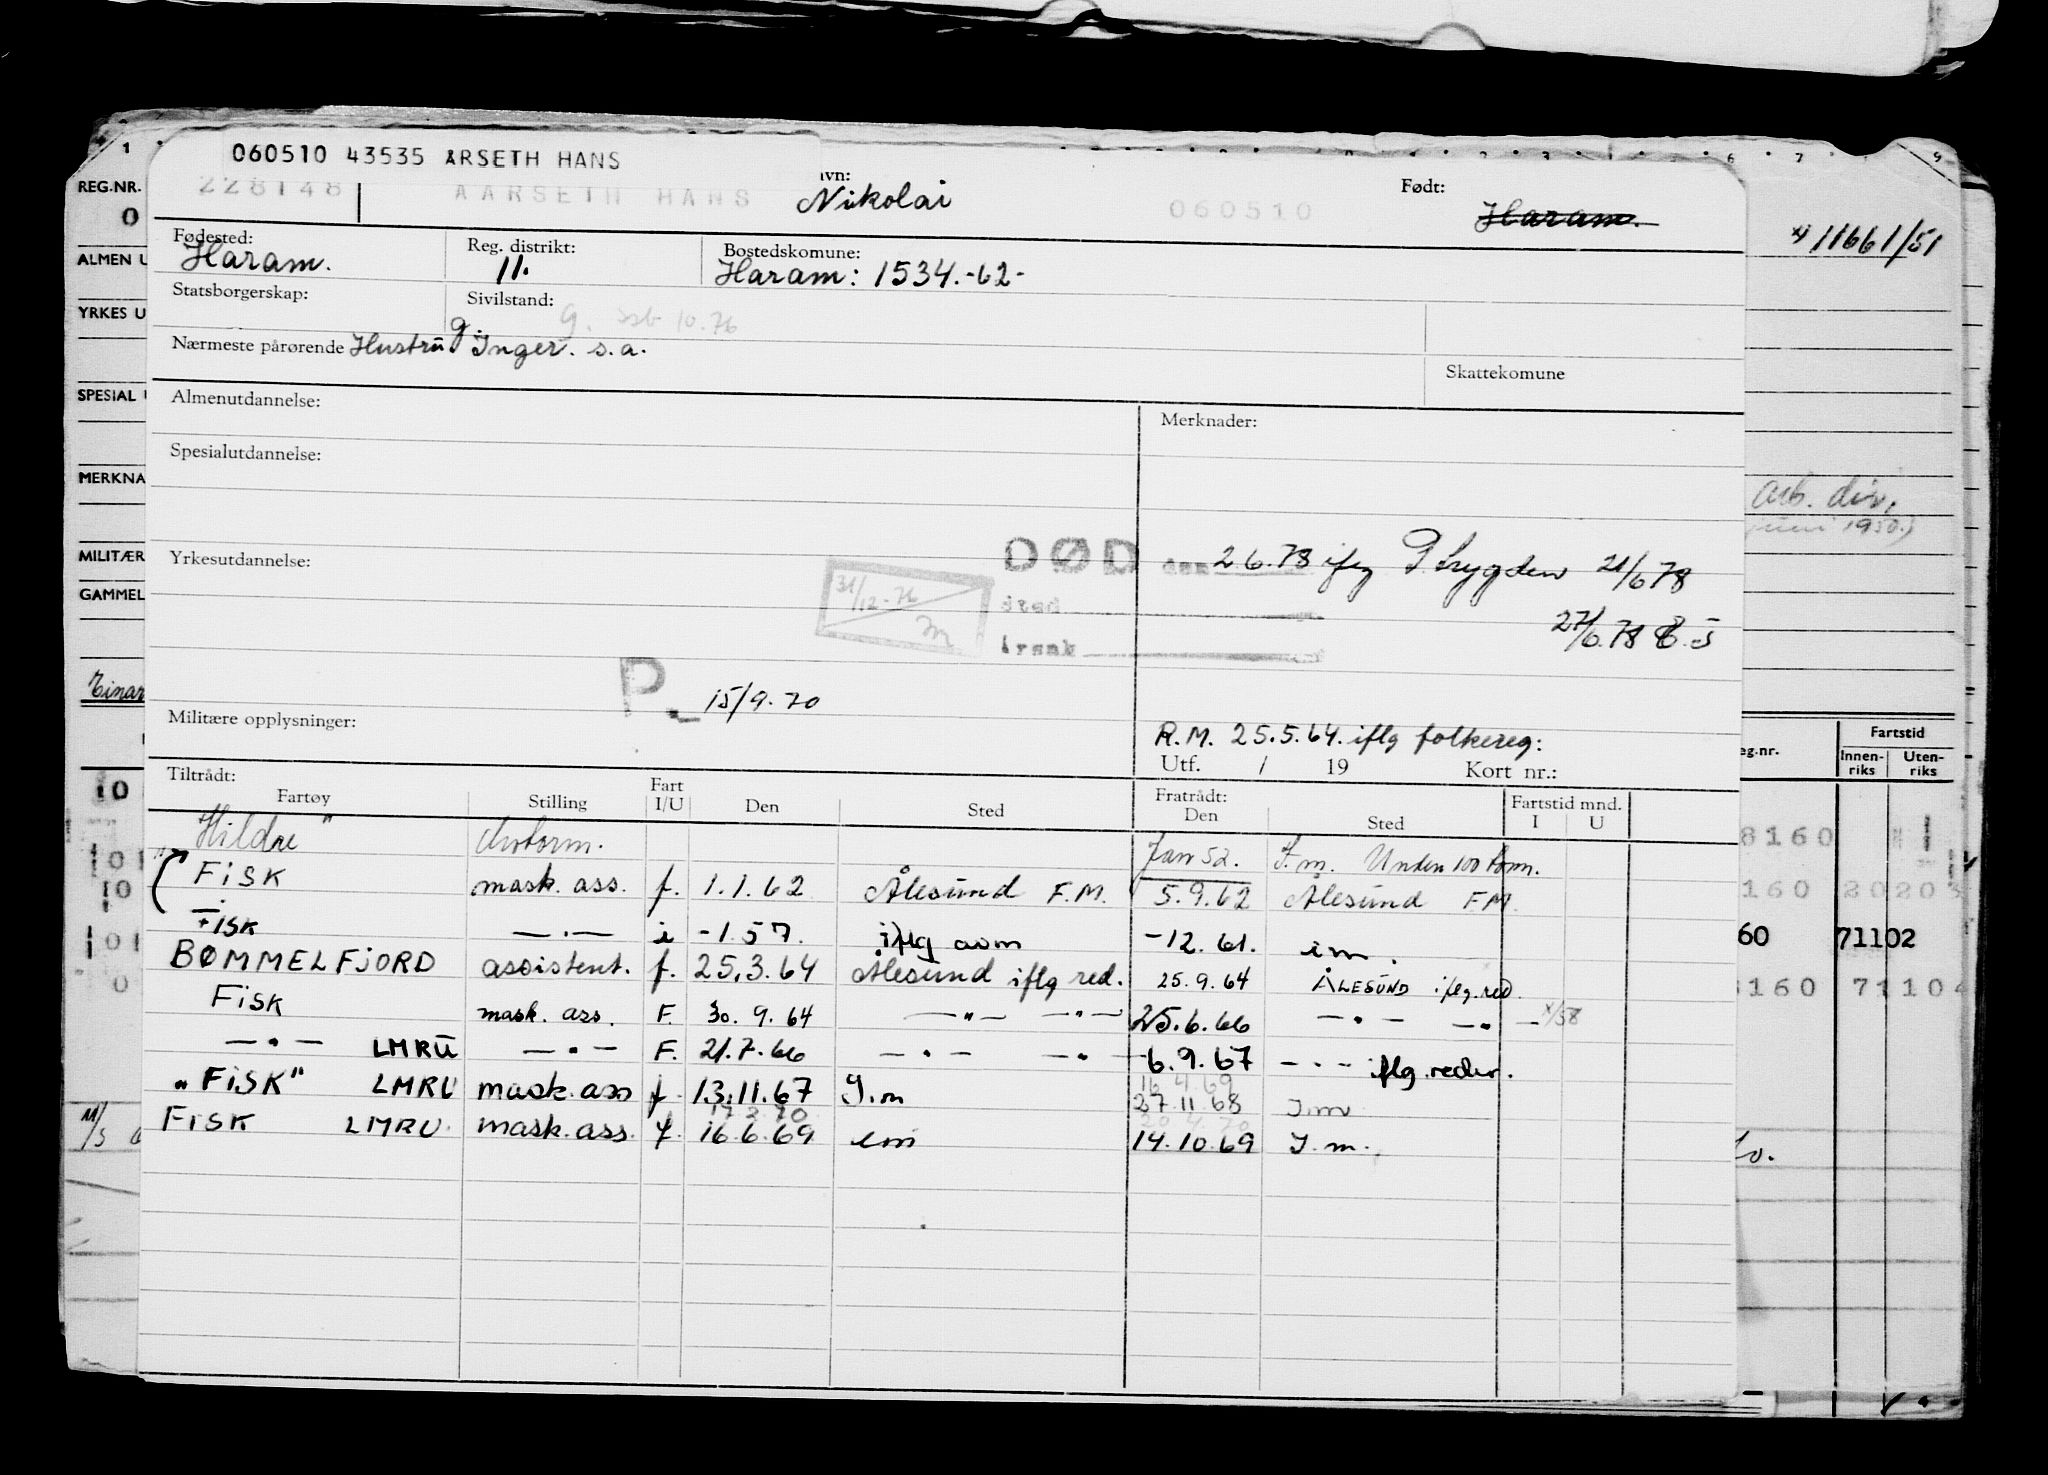 060510 43535 ÅRSETH HANS
228148 AARSETH HANS Nikolai 060510 Født: Haram.
REG.NR.
Fødested: Haram. Reg. distrikt: 11. Bostedskomune: Haram: 1534.-62-
11661/51
ALMEN U
Statsborgerskap: Sivilstand: g. g. ssb 10.76
YRKES U
Nærmeste pårørende Hustru Inger. s.a.
Skattekomune
SPESIAL
Almenutdannelse: Merknader:
Spesialutdannelse:
MERKNA
arb. div.
1950.)
MILITÆR
Yrkesutdannelse: DØD den 2.6.78 iflg Trygden 21/6 78
31/12-76 sted 27/6.78
GAMMEL
årsak
Einar
P. 15/9.70
Militære opplysninger: R.M. 25.5.64. iflg folkereg:
Utf. / 19 Kort nr.:
eg.nr. Fartstid Innen-riks Uten-riks
Tiltrådt: Fratrådt: Fartstid mnd.
Fartøy Stilling Fart I/U Den Sted Den Sted I U
"Hildre" Motorm. Jan 52. I.m. Under 100 tonn.
8160
FISK mask. ass. f. 1.1.62 Ålesund F.M. 5.9.62 Ålesund F.M.
160 20203
FISK —.— i -1.57. iflg -12.61. i.m.
60 71102
BØMMELFJORD assistent. f. 25.3.64 Ålesund iflg red. 25.9.64 ÅLESUND iflg. red.
160 71104
FISK mask. ass. F. 30.9.64 —"— —"— 25.6.66 —.— —.— x/58
—.— LMRU —.— F. 21.7.66 —.— —.— 6.9.67 — iflg reder.
16.4.69
"FISK" LMRU mask. ass f. 13.11.67 I.m 27.11.68 I.m
17.2.70 20.4.70
FISK LMRU. mask. ass. f. 16.6.69 i.m 14.10.69 I.m.
M/S